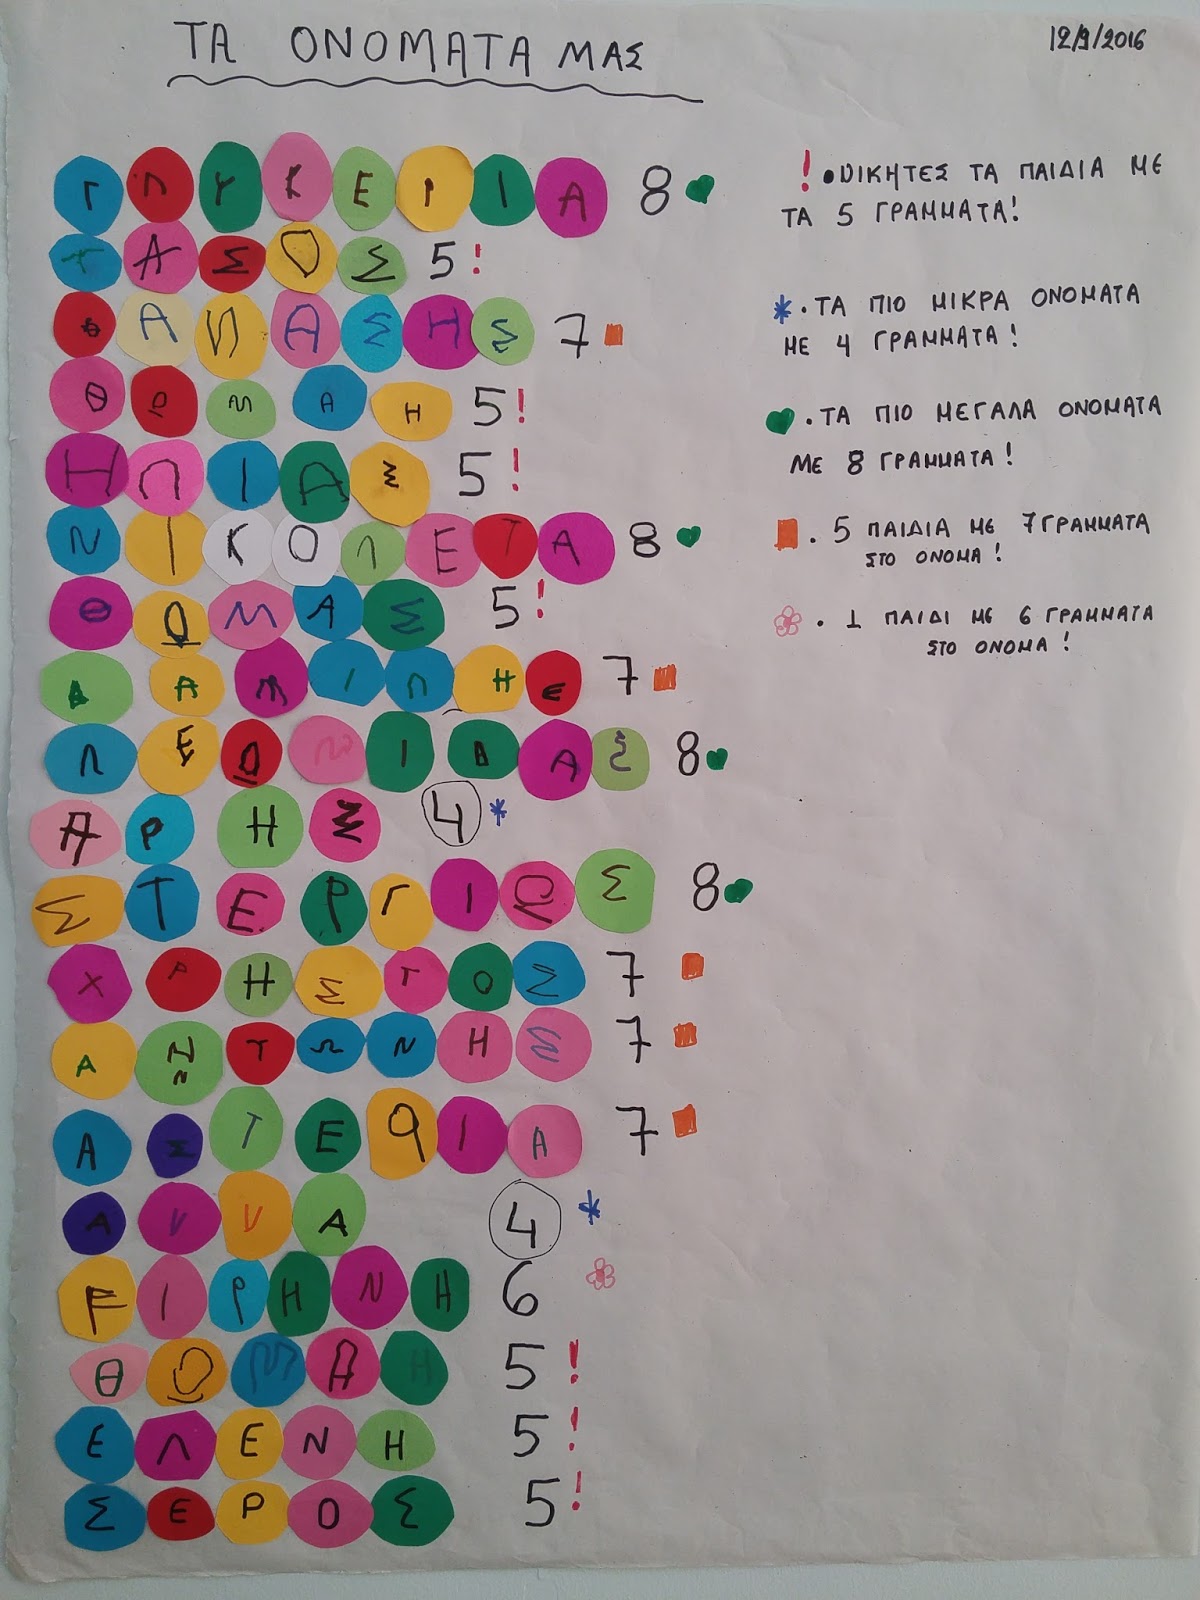 ΤΑ ΟΝΟΜΑΤΑ ΜΑΣ
12/9/2016
ΓΛΥΚΕΡΙΑ 8
ΤΑΣΟΣ 5!
ΘΑΝΑΣΗΣ 7
ΘΩΜΑΗ 5!
ΗΛΙΑΣ 5!
ΝΙΚΟΛΕΤΑ 8
ΘΩΜΑΣ 5!
ΔΑΜΙΛΗΕ 7
ΛΕΩΝΙΔΑΣ 8
ΑΡΗΣ 4 *
ΣΤΕΡΓΙΟΣ 8
ΧΡΗΣΤΟΣ 7
ΑΝΤΩΝΗΣ 7
ΑΣΤΕΡΙΑ 7
ΑΝΝΑ 4 *
ΕΙΡΗΝΗ 6
ΘΩΜΑΗ 5!
ΕΛΕΝΗ 5!
ΣΕΡΟΣ 5!
! • ΝΙΚΗΤΕΣ ΤΑ ΠΑΙΔΙΑ ΜΕ
ΤΑ 5 ΓΡΑΜΜΑΤΑ!
* . ΤΑ ΠΙΟ ΜΙΚΡΑ ΟΝΟΜΑΤΑ
ΜΕ 4 ΓΡΑΜΜΑΤΑ!
. ΤΑ ΠΙΟ ΜΕΓΑΛΑ ΟΝΟΜΑΤΑ
ΜΕ 8 ΓΡΑΜΜΑΤΑ!
. 5 ΠΑΙΔΙΑ ΜΕ 7 ΓΡΑΜΜΑΤΑ
ΣΤΟ ΟΝΟΜΑ!
. 1 ΠΑΙΔΙ ΜΕ 6 ΓΡΑΜΜΑΤΑ
ΣΤΟ ΟΝΟΜΑ!